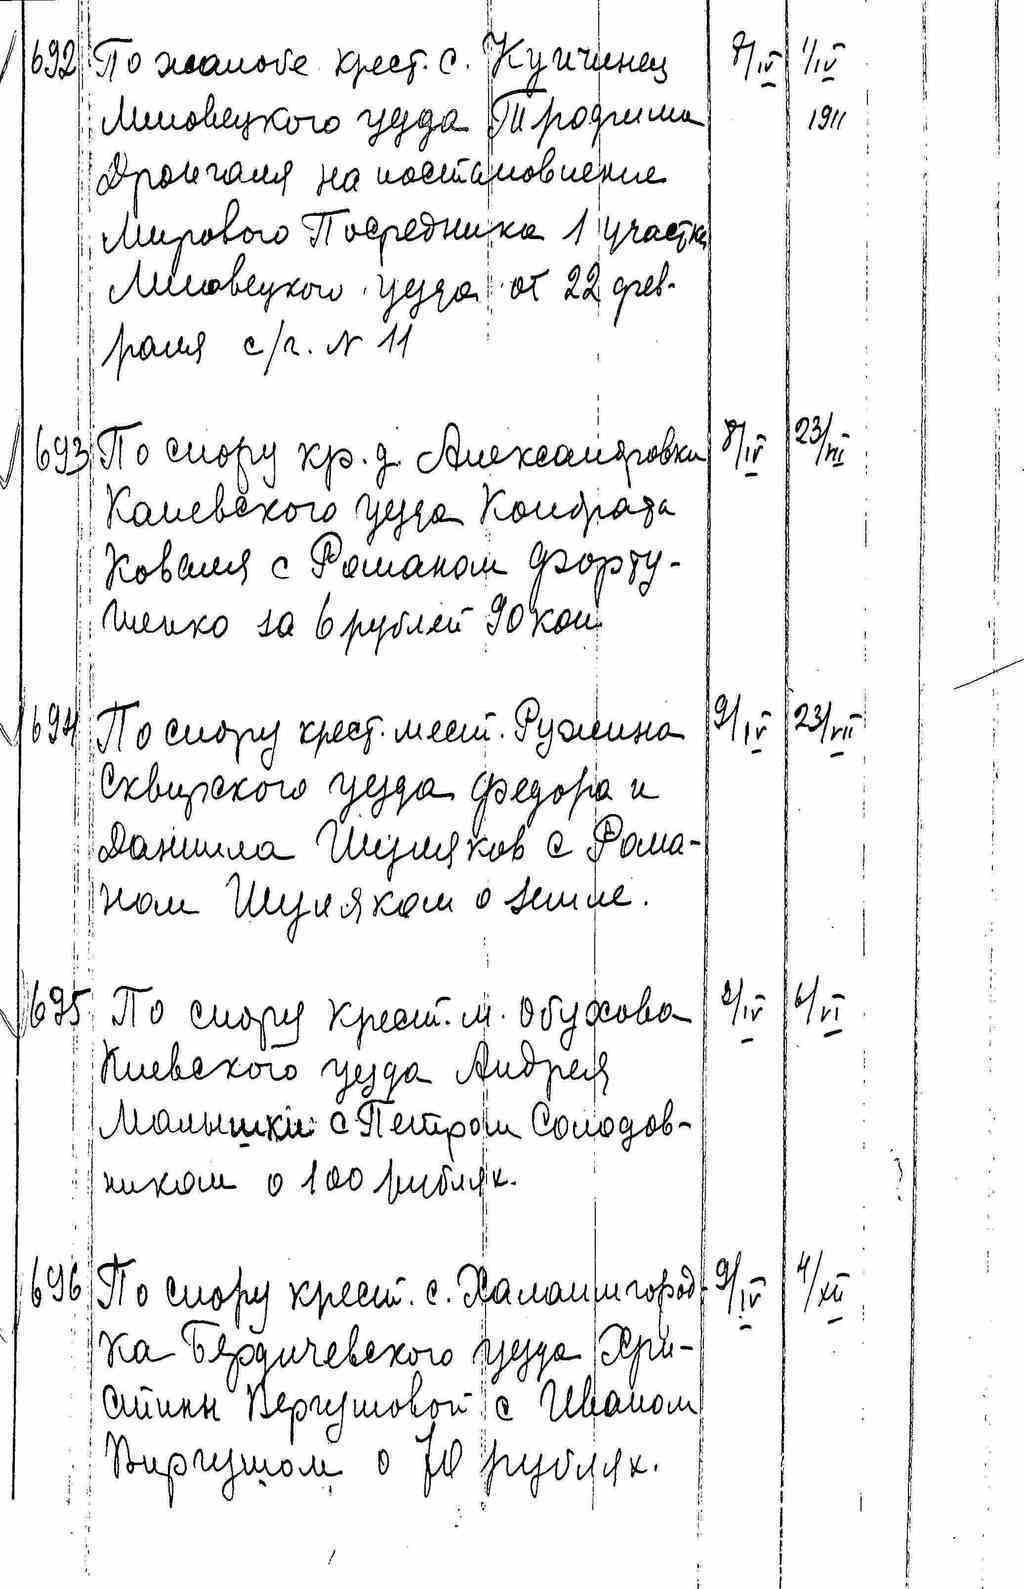 692 По жалобе крест. с. Купчинец 8/IV 1/IV
Липовецкого уезда Трофима 1911
Дронгаля на постановление
Мирового Посредника 1 участка
Липовецкого уезда от 22 фев-
раля с/г. N 11
693 По спору кр. д. Александровки 8/IV 23/VII
Каневского уезда Кондрата
Коваля с Романом Форту-
шенко за 6 рублей 90 коп.
694 По спору крест. мест. Ружина 9/IV 23/VII
Сквирского уезда Федора и
Даниила Шуляков с Рома-
ном Шуляком о земле.
695 По спору крест. м. Обухова 9/IV 6/VI
Киевского уезда Андрея
Малышки с Петром Солодов-
ником о 100 рублях.
696 По спору крест. с. Халаимгород- 9/IV 4/XII
ка Бердичевского уезда Хри-
стины Вергушовой с Иваном
Виргушом о 70 рублях.